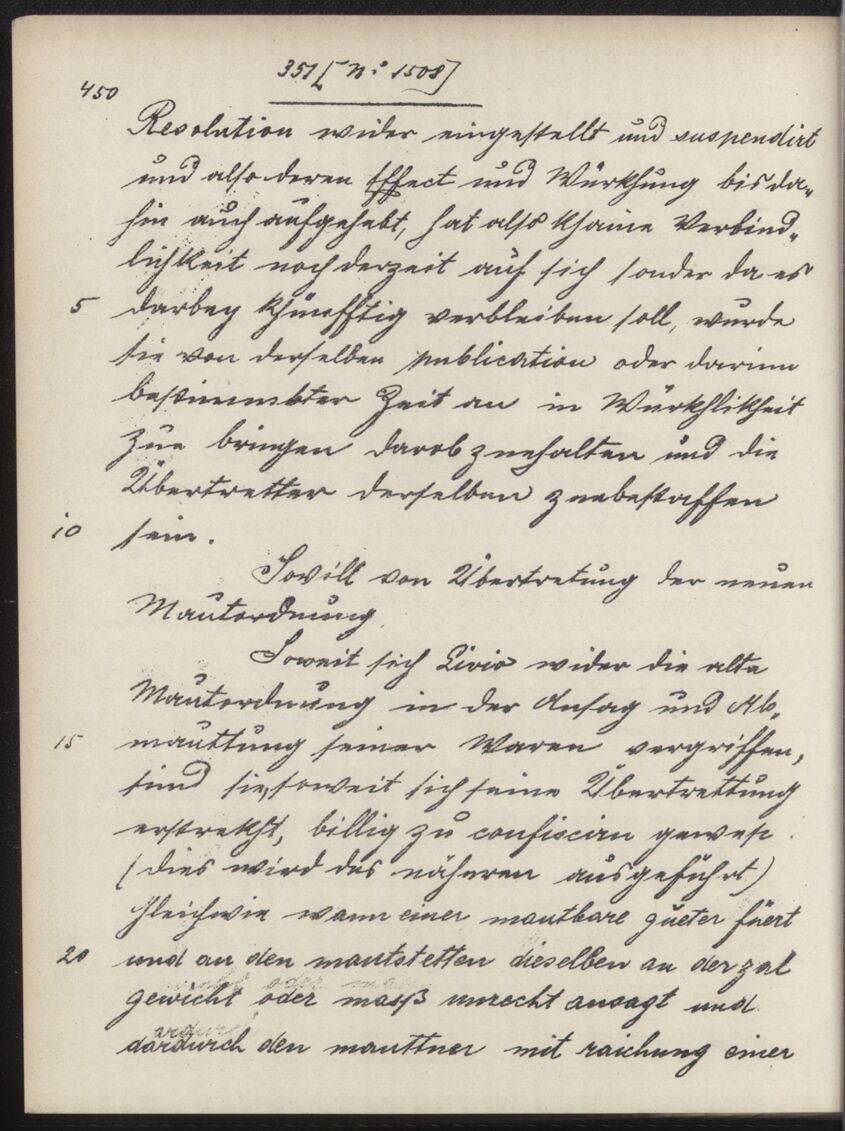 351 [No 1508]
450
Resolution wider eingestellt und suspendirt
und also deren Effect und Würkhung bis da-
hin auch aufgehebt, hat also khaine Verbind-
lichkeit noch derzeit auf sich sonder da es
5 darbey khünfftig verbleiben soll, wurde
sie von derselben publication oder darinn
bestimmbter Zeit an in Würkhlikheit
zue bringen darob zuehalten und die
Übertretter derselben zuebestraffen
10 sein.
Sovill von Übertretung der neuen
Mautordnung
Soweit sich Livio wider die alte
Mautordnung in der Ansag und Ab-
15 mauttung seiner Waren vergriffen,
sind sie, soweit sich seine Übertrettung
erstrekht, billig zu confiscirn gewest.
(dies wird des näheren ausgeführt)
Gleichwie wann einer mautbare güeter füert
20 und an den mautstetten dieselben an der zal
gewicht oder masß unrecht ansagt und
dardurch den mauttner mit raichung einer